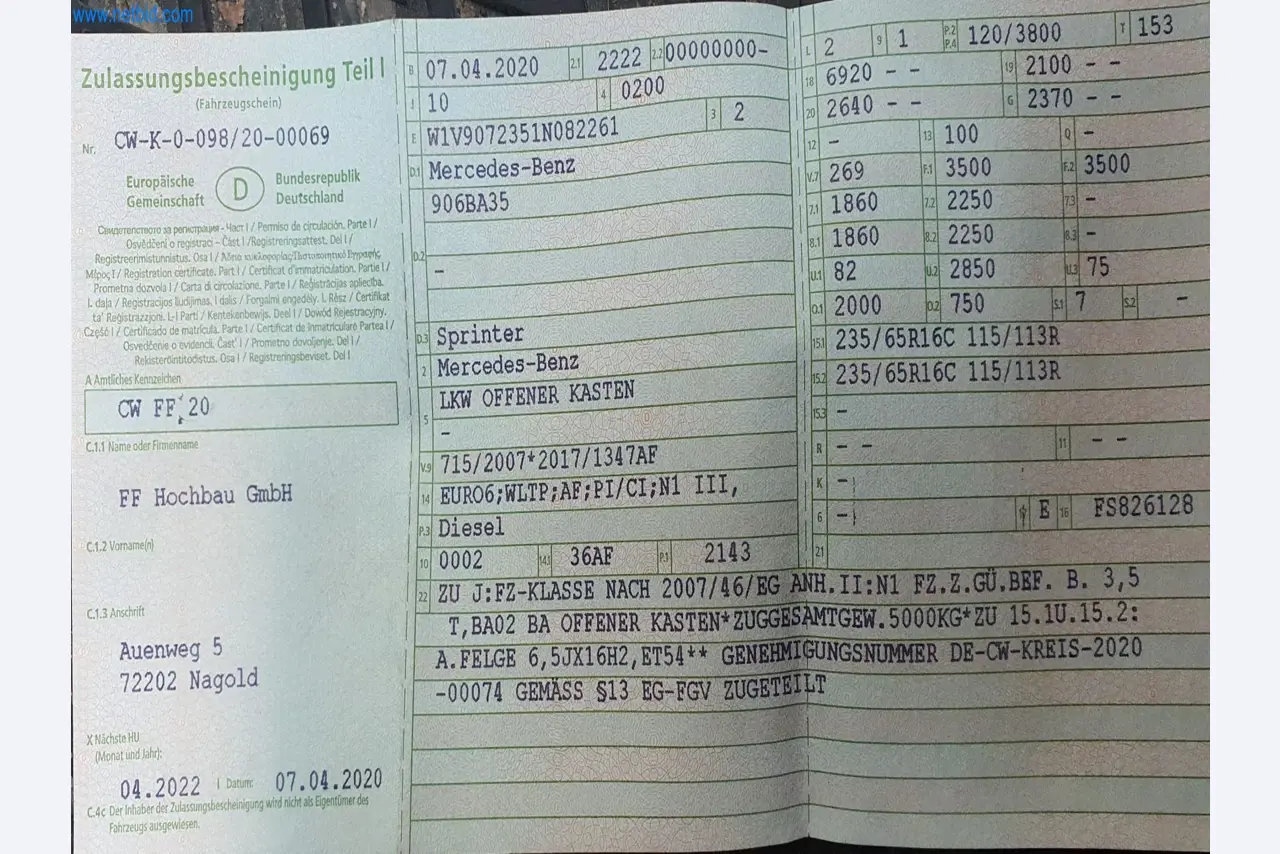 www.netbid.com
Zulassungsbescheinigung Teil I
(Fahrzeugschein)
Nr. CW-K-0-098/20-00069
Europäische Gemeinschaft
D
Bundesrepublik Deutschland
Свидетелството за регистрация - Част I / Permiso de circulación. Parte I /
Osvědčení o registraci - Část I / Registreringsattest. Del I /
Registreerimistunnistus. Osa I / Άδεια κυκλοφορίας/Πιστοποιητικό Εγγραφής
Μέρος I / Registration certificate. Part I / Certificat d'immatriculation. Partie I /
Prometna dozvola I / Carta di circolazione. Parte I / Reģistrācijas apliecība.
I. daļa / Registracijos liudijimas. I dalis / Forgalmi engedély. I. Rész / Certifikat
ta' Registrazzjoni. L-I Parti / Kentekenbewijs. Deel I / Dowód Rejestracyjny.
Część I / Certificado de matrícula. Parte I / Certificat de înmatriculare Partea I /
Osvedčenie o evidencii. Časť I / Prometno dovoljenje. Del I /
Rekisteröintitodistus. Osa I / Registreringsbeviset. Del I
A Amtliches Kennzeichen
CW FF 20
C.1.1 Name oder Firmenname
FF Hochbau GmbH
C.1.2 Vorname(n)
C.1.3 Anschrift
Auenweg 5
72202 Nagold
X Nächste HU
(Monat und Jahr):
04.2022 I Datum: 07.04.2020
C.4c Der Inhaber der Zulassungsbescheinigung wird nicht als Eigentümer des
Fahrzeugs ausgewiesen.
B 07.04.2020 2.1 2222 2.2 00000000-
J 10 4 0200
E W1V9072351N082261 3 2
D.1 Mercedes-Benz
906BA35
D.2
-
D.3 Sprinter
2 Mercedes-Benz
5 LKW OFFENER KASTEN
-
V.9 715/2007*2017/1347AF
14 EURO6;WLTP;AF;PI/CI;N1 III,
P.3 Diesel
10 0002 14.1 36AF P.1 2143
L 2 9 1 P.2 P.4 120/3800 T 153
18 6920 - - 19 2100 - -
20 2640 - - G 2370 - -
12 - 13 100 Q -
V.7 269 F.1 3500 F.2 3500
7.1 1860 7.2 2250 7.3 -
8.1 1860 8.2 2250 8.3 -
U.1 82 U.2 2850 U.3 75
O.1 2000 O.2 750 S.1 7 S.2 -
15.1 235/65R16C 115/113R
15.2 235/65R16C 115/113R
15.3 -
R - - 11 - -
K -
6 - E 16 FS826128
21
22 ZU J:FZ-KLASSE NACH 2007/46/EG ANH.II:N1 FZ.Z.GÜ.BEF. B. 3,5
T,BA02 BA OFFENER KASTEN*ZUGGESAMTGEW.5000KG*ZU 15.1U.15.2:
A.FELGE 6,5JX16H2,ET54** GENEHMIGUNGSNUMMER DE-CW-KREIS-2020
-00074 GEMÄSS §13 EG-FGV ZUGETEILT